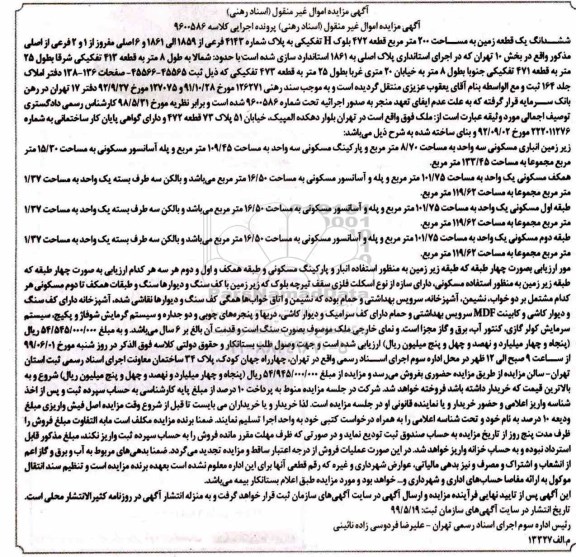 آگهی مزایده اموال غیر منقول (اسناد رهنی)
آگهی مزایده اموال غیر منقول (اسناد رهنی) پرونده اجرایی کلاسه ۹۶۰۰۵۸۶
ششدانگ یک قطعه زمین به مساحت ۲۰۰ متر مربع قطعه ۴۷۲ بلوک H تفکیکی به پلاک شماره ۴۱۴۳ فرعی از ۱۸۵۹ الی ۱۸۶۱ و ۱۶ اصلی مفروز از ۱ و ۲ فرعی از اصلی
مذکور واقع در بخش ۱۰ تهران که در اجرای استانداری پلاک اصلی به ۱۸۶۱ استاندارد سازی شده است با حدود: شمالا به طول ۸ متر به قطعه ۴۱۲ تفکیکی شرقا بطول ۲۵
متر به قطعه ۴۷۱ تفکیکی جنوبا بطول ۸ متر به خیابان ۲۰ متری غربا بطول ۲۵ متر به قطعه ۴۷۳ تفکیکی که ذیل ثبت ۴۵۵۶۵-۴۵۵۶۶ صفحات ۱۳۶-۱۳۸ دفتر املاک
جلد ۱۶۴ ثبت و مع الواسطه بنام آقای یعقوب عزیزی منتقل گردیده است و به موجب سند رهنی ۱۲۶۲۷۱ مورخ ۹۱/۱۰/۲۸ و ۱۲۷۰۷۵ مورخ ۹۲/۹/۲۷ دفتر ۱۷ تهران در رهن
بانک سرمایه قرار گرفته که به علت عدم ایفای تعهد منجر به صدور اجرائیه تحت شماره ۹۶۰۰۵۸۶ شده است و برابر نظریه مورخ ۹۸/۵/۳۱ کارشناس رسمی دادگستری
توصیف اجمالی مورد وثیقه عبارت است از: ملک فوق واقع در تهران بلوار دهکده المپیک، خیابان ۵۱ پلاک ۷۳ قطعه ۴۷۲ و دارای گواهی پایان کار ساختمانی به شماره
۲۲۲۰۱۱۲۷۶ مورخ ۹۲/۰۹/۰۲ و بنای ساخته شده به شرح ذیل می‌باشد:
زیر زمین انباری مسکونی سه واحد به مساحت ۸/۷۰ متر مربع و پارکینگ مسکونی سه واحد به مساحت ۱۰۹/۴۵ متر مربع و پله آسانسور مسکونی به مساحت ۱۵/۳۰ متر
مربع مجموعا به مساحت ۱۳۳/۴۵ متر مربع.
همکف مسکونی یک واحد به مساحت ۱۰۱/۷۵ متر مربع و پله و آسانسور مسکونی به مساحت ۱۶/۵۰ متر مربع می‌باشد و بالکن سه طرف بسته یک واحد به مساحت ۱/۳۷
متر مربع مجموعا به مساحت ۱۱۹/۶۲ متر مربع.
طبقه اول مسکونی یک واحد به مساحت ۱۰۱/۷۵ متر مربع و پله و آسانسور مسکونی به مساحت ۱۶/۵۰ متر مربع می‌باشد و بالکن سه طرف بسته یک واحد به مساحت ۱/۳۷
متر مربع مجموعا به مساحت ۱۱۹/۶۲ متر مربع.
طبقه دوم مسکونی یک واحد به مساحت ۱۰۱/۷۵ متر مربع و پله و آسانسور مسکونی به مساحت ۱۶/۵۰ متر مربع می‌باشد و بالکن سه طرف بسته یک واحد به مساحت ۱/۳۷
متر مربع مجموعا به مساحت ۱۱۹/۶۲ متر مربع.
مور ارزیابی بصورت چهار طبقه که طبقه زیر زمین به منظور استفاده انبار و پارکینگ مسکونی و طبقه همکف و اول و دوم هر سه هر کدام ارزیابی به صورت چهار طبقه که
طبقه زیر زمین به منظور استفاده مسکونی. دارای سازه از نوع اسکلت فلزی سقف تیرچه بلوک که زیر زمین با کف سنگ و دیوارها سنگ و طبقات همکف تا دوم مسکونی هر
کدام مشتمل بر دو خواب، نشیمن، آشپزخانه، سرویس بهداشتی و حمام بوده که نشیمن و اتاق خواب‌ها همگی کف سنگ و دیوارها نقاشی شده، آشپزخانه دارای کف سنگ
و دیوار کاشی و کابینت MDF سرویس بهداشتی و حمام دارای کف سرامیک و دیوار کاشی، دربها و پنجره‌های چوبی و دو جداره و سیستم گرمایش شوفاژ و پکیج، سیستم
سرمایش کولر گازی، کنتور آب، برق و گاز مجزا است. و نمای خارجی ملک موصوف بصورت سنگ است و قدمت آن بالغ بر ۶ سال می‌باشد. و به مبلغ ۵۴/۵۴۵/۰۰۰/۰۰۰ ریال
(پنجاه و چهار میلیارد و نهصد و چهل و پنج میلیون ریال) ارزیابی شده است و جهت وصول طلب بستانکار و حقوق دولتی کلاسه فوق الذکر در روز شنبه مورخ ۹۹/۰۶/۰۱
از ساعت ۹ صبح الی ۱۲ ظهر در محل اداره سوم اجرای اسناد رسمی واقع در تهران، چهارراه جهان کودک، پلاک ۳۴ ساختمان معاونت اجرای اسناد رسمی ثبت استان
تهران- سالن مزایده از طریق مزایده حضوری بفروش می‌رسد و مزایده از مبلغ ۵۴/۹۴۵/۰۰۰/۰۰۰ ریال (پنجاه و چهار میلیارد و نهصد و چهل و پنج میلیون ریال) شروع و به
بالاترین قیمت که خریدار داشته باشد فروخته خواهد شد. شرکت در جلسه مزایده منوط به پرداخت ۱۰ درصد از مبلغ پایه کارشناسی به حساب سپرده ثبت و پس از اخذ
شناسه واریز اعلامی و حضور خریدار و یا نماینده قانونی او در جلسه مزایده است. لذا خریدار و یا خریداران می بایست تا قبل از شروع وقت مزایده اصل فیش واریزی مبلغ
ودیعه ۱۰ درصد به نام خود و تحت شناسه اعلامی را به همراه درخواست کتبی خود به واحد اجرا تسلیم نمایند. ضمنا برنده مزایده مکلف است مابه التفاوت مبلغ فروش را
ظرف مدت پنج روز از تاریخ مزایده به حساب صندوق ثبت تودیع نماید و در صورتی که ظرف مهلت مقرر مانده فروش را به حساب سپرده ثبت واریز نکند، مبلغ مذکور قابل
استرداد نبوده و به حساب خزانه واریز خواهد شد. در این صورت عملیات فروش از درجه اعتبار ساقط و مزایده تجدید می‌گردد. ضمنا بدهی‌های مربوط به آب و برق و گاز اعم
از انشعاب و اشتراک و مصرف و نیز بدهی مالیاتی، عوارض شهرداری و غیره که رقم قطعی آنها برای این اداره معلوم نشده است بعهده برنده مزایده است و تنظیم سند انتقال
موکول به ارائه مفاصا حساب‌های اداری و شهرداری و... خواهد بود و مورد مزایده طبق اعلام بستانکار بیمه می‌باشد.
این آگهی پس از تایید نهایی فرآینده مزایده و ارسال آگهی در سایت آگهی‌های سازمان ثبت قرار خواهد گرفت و به منزله انتشار آگهی در روزنامه کثیرالانتشار محلی است.
تاریخ انتشار در سایت آگهی‌های سازمان ثبت: ۹۹/۵/۱۹
رئیس اداره سوم اجرای اسناد رسمی تهران - علیرضا فردوسی زاده نائینی
م.الف ۱۳۳۲۷